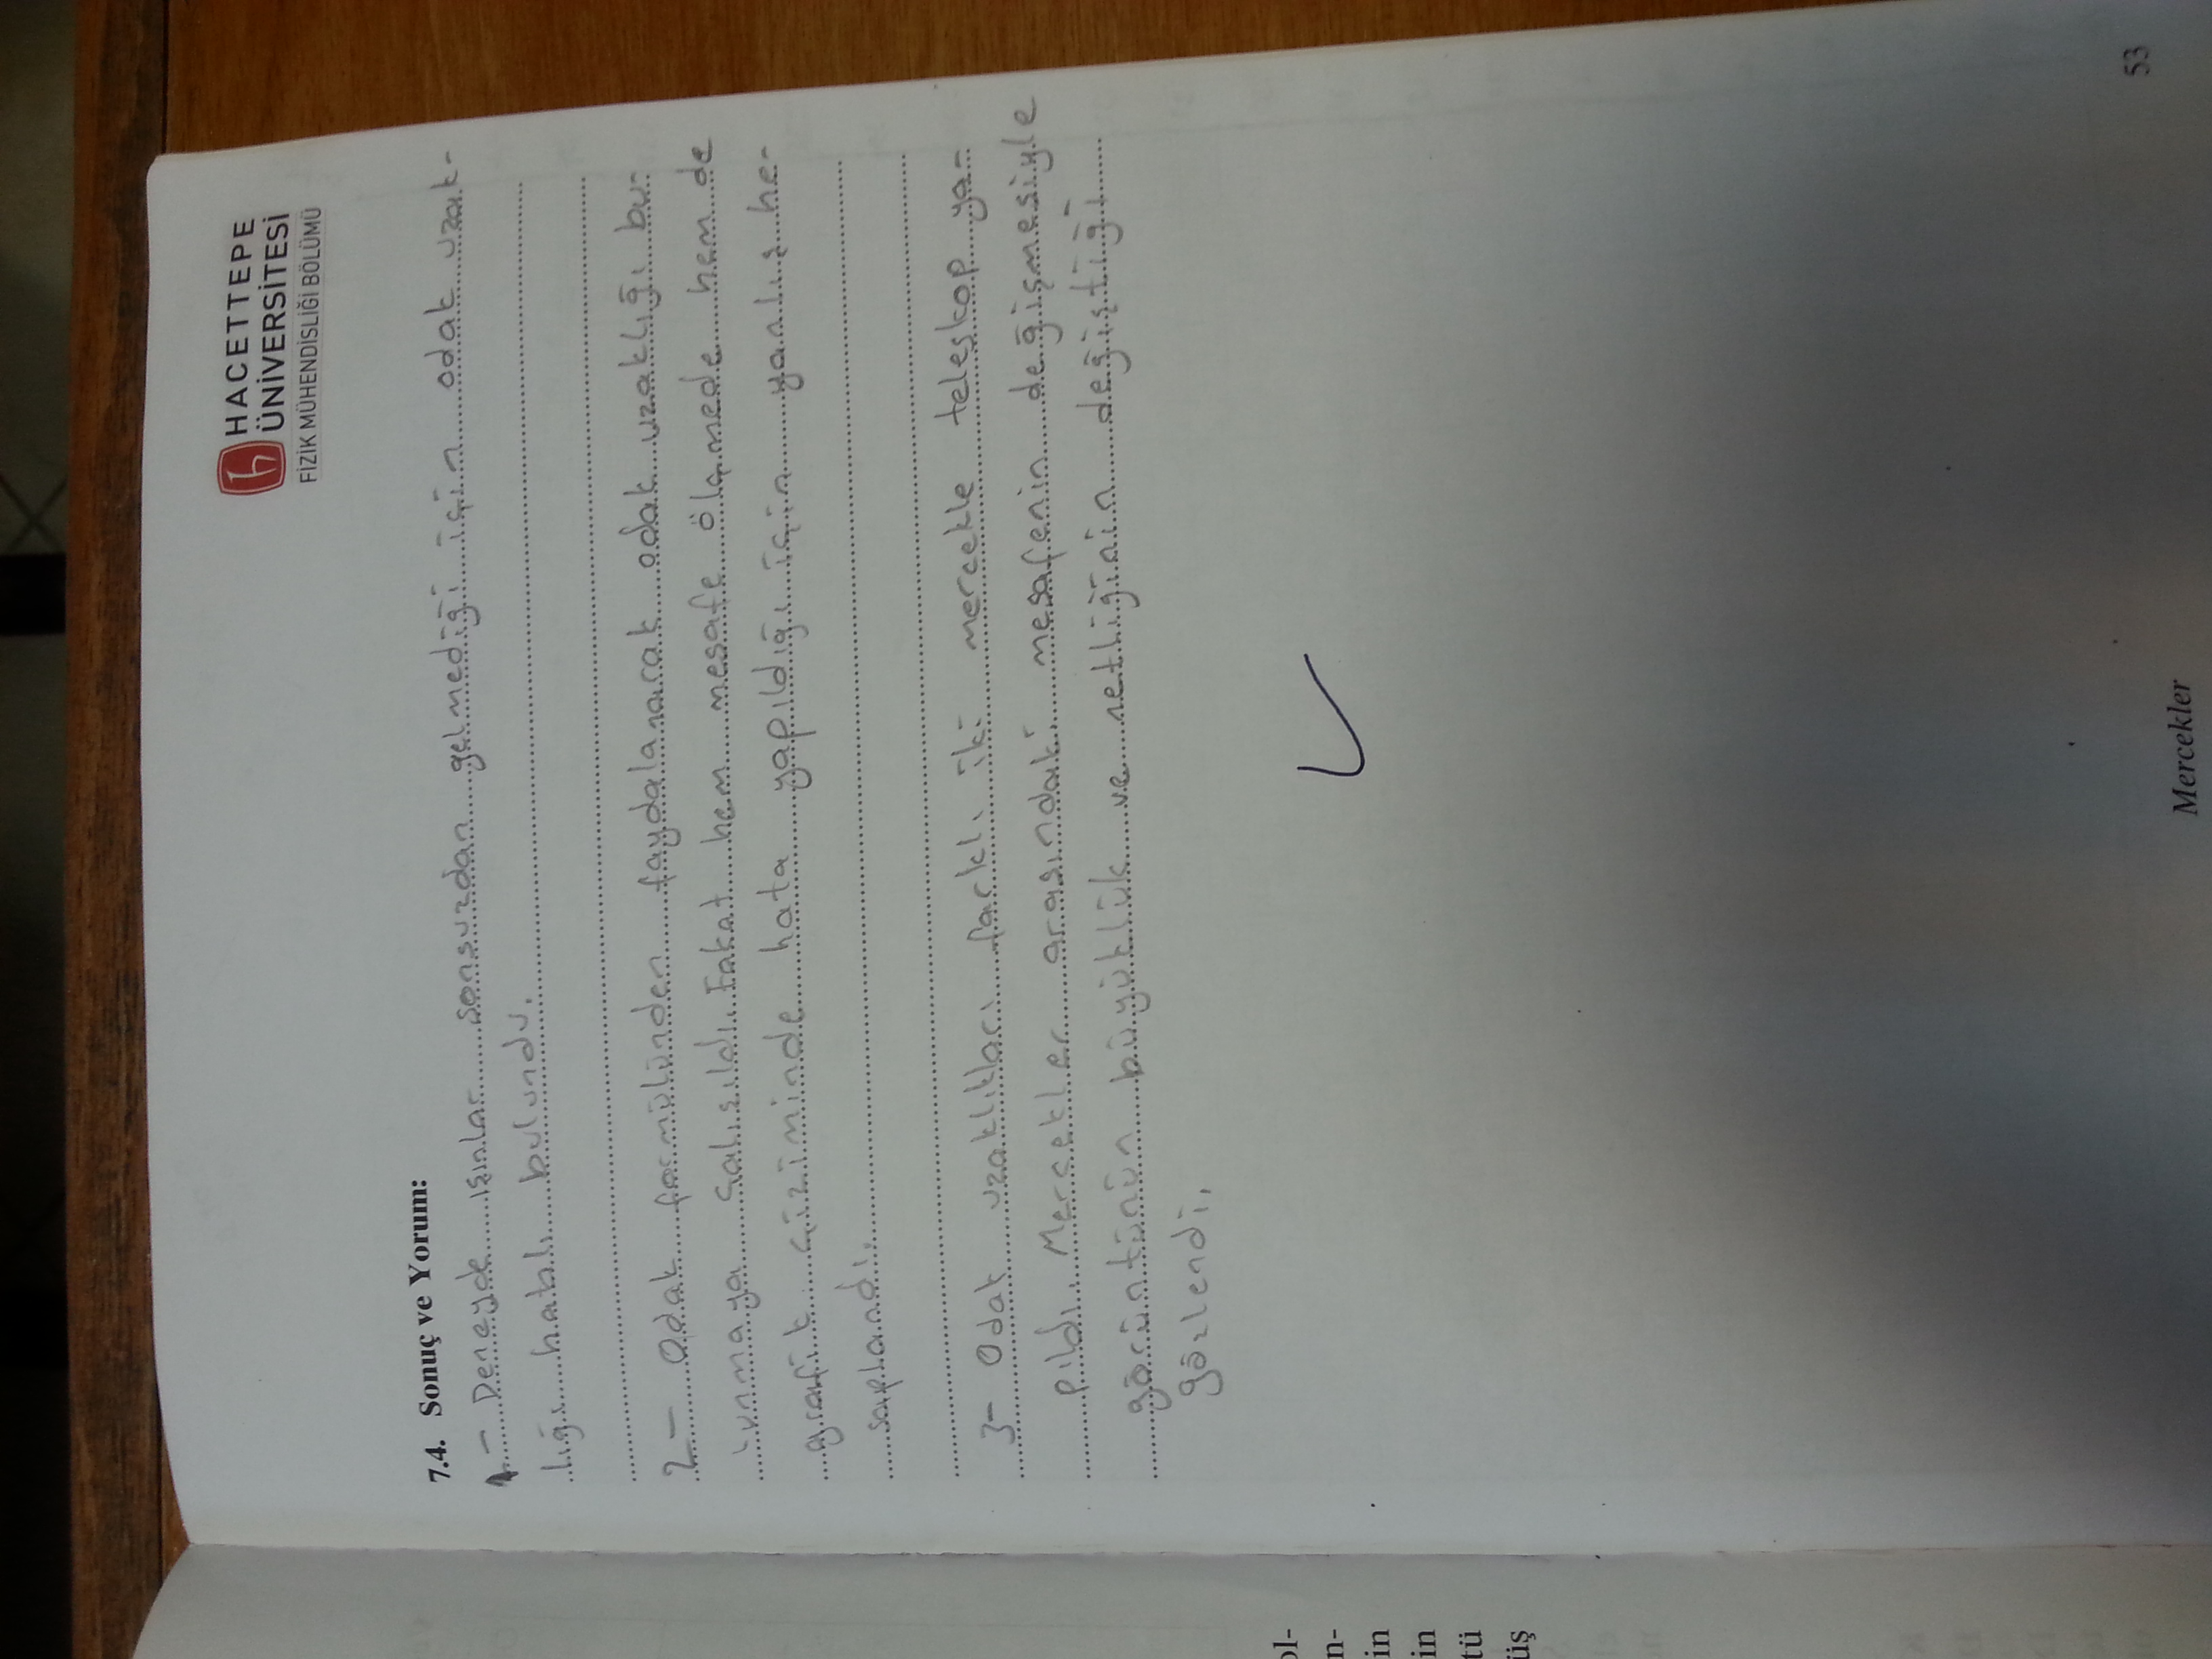 HACETTEPE
ÜNİVERSİTESİ
FİZİK MÜHENDİSLİĞİ BÖLÜMÜ
7.4. Sonuç ve Yorum:
1- Deneyde ışınlar sonsuzdan gelmediği için odak uzak-
lığı hatalı bulundu.
2- Odak formülünden faydalanarak odak uzaklığı bu-
lunmaya çalışıldı. Fakat hem mesafe ölçmede hem de
grafik çiziminde hata yapıldığı için yanlış he-
saplandı.
3- Odak uzaklıkları farklı iki mercekle teleskop ya-
pıldı. Mercekler arasındaki mesafenin değişmesiyle
görüntünün büyüklük ve netliğinin değiştiği
gözlendi.
ol-
n-
in
in
tü
üş
53
Mercekler